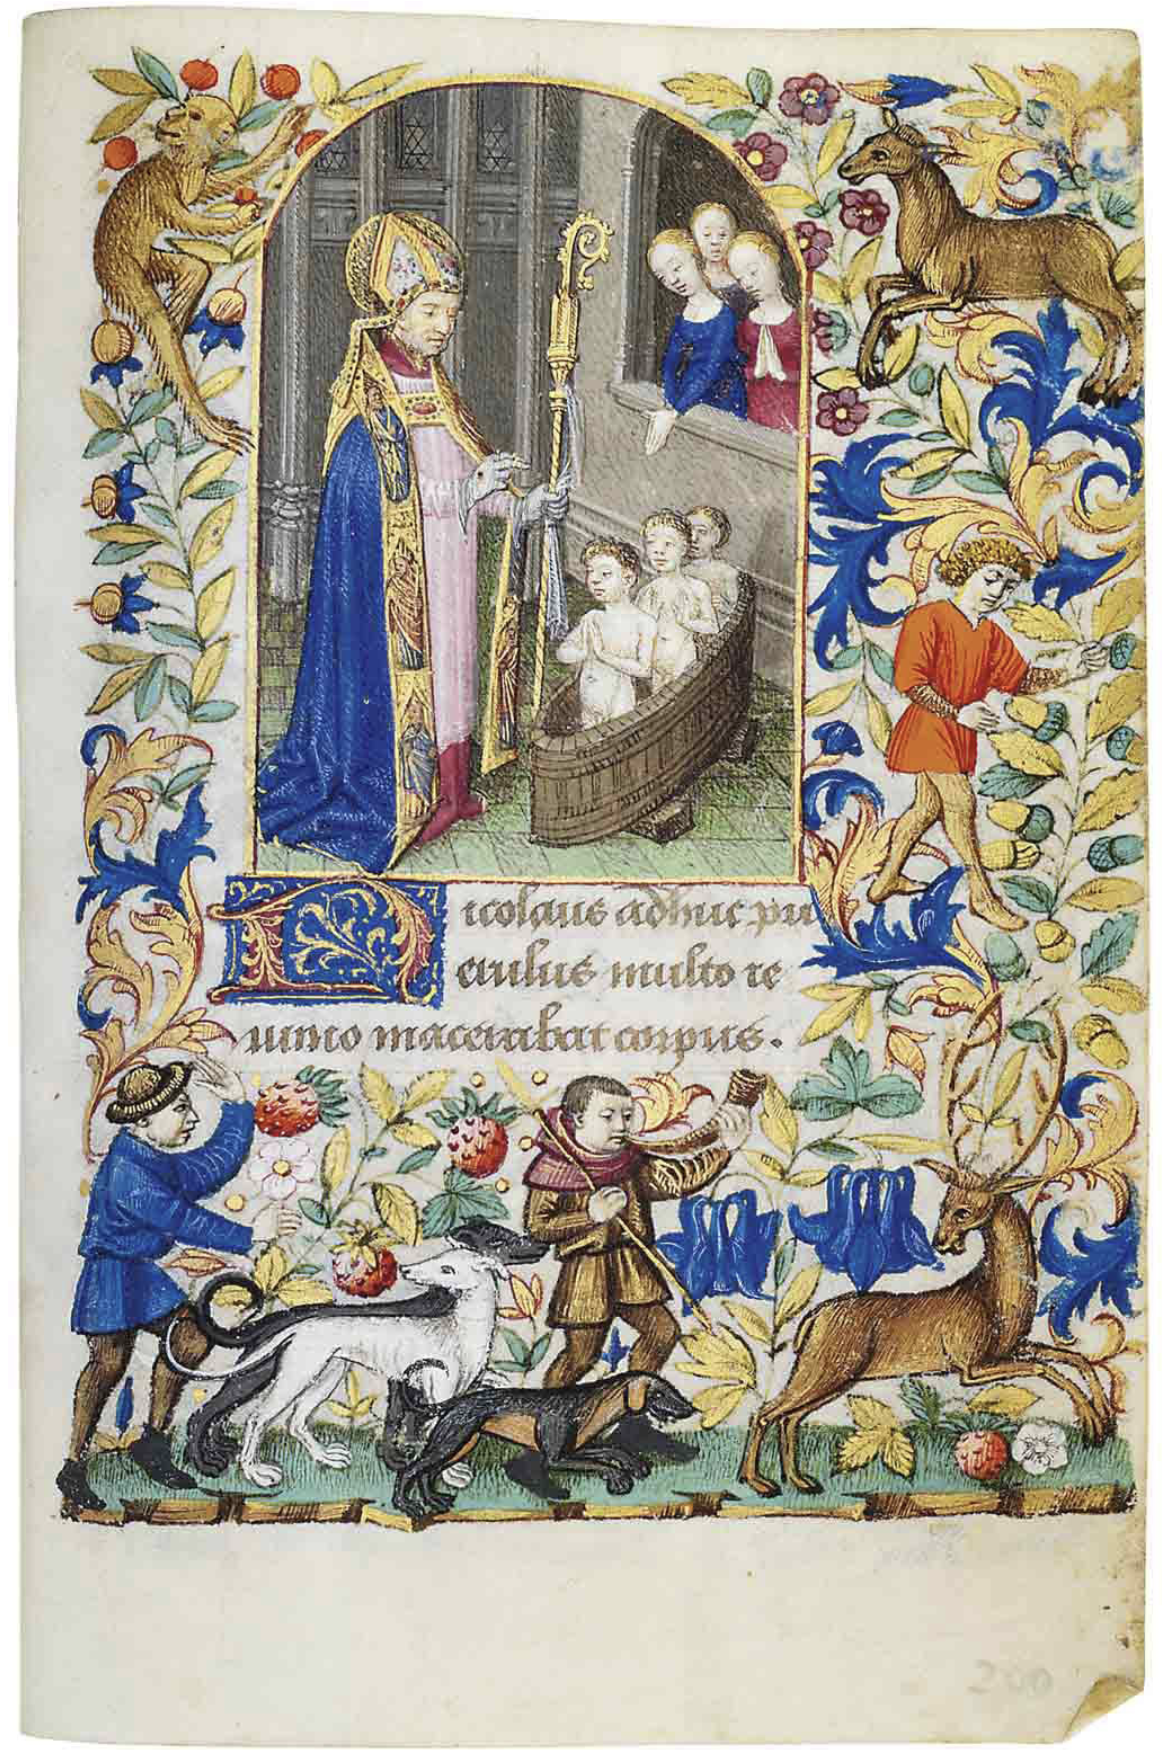 Nicolaus adhuc pu
erulus multo ie
iunio macerabat corpus.
200